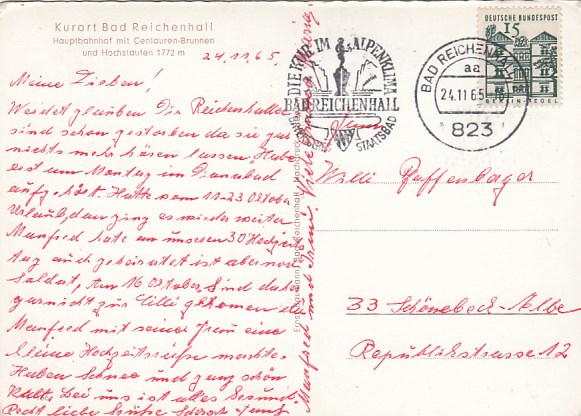 Kurort Bad Reichenhall
Hauptbahnhof mit Centauren-Brunnen
und Hochstaufen 1772 m
24.11.65.
Meine Lieben!
Werdet glauben Die Reichenhaller
sind schon gestorben da sie gar
nichts mehr hören lassen, Habe
erst um Montag im Dianabad
aufgehört. Hatte vom 11-23 Oktober
Urlaub, dan ging es wieder weiter
Manfred hate an unseren 30 Hochzeit
tag auch geheiratet ist aber noch
Soldat, Am 16 Oktober, Sind daher
garnicht zur Lilli gekomen da
Manfred mit seiner Frau eine
kleine Hochzeitsreise machte.
Haben Schnee und ganz schön
Kalt. Bei uns ist alles Gesund
Recht liebe Grüße
Manfred und
DIE KUR IM ALPENKLIMA
BAD REICHENHALL
STAATSBAD
BAD REICHENHALL
aa
24.11.65
823
DEUTSCHE BUNDESPOST
15
BERLIN-TEGEL
Willi Pfaffenberger
33 Schönebeck-Elbe
Republikstrasse 12